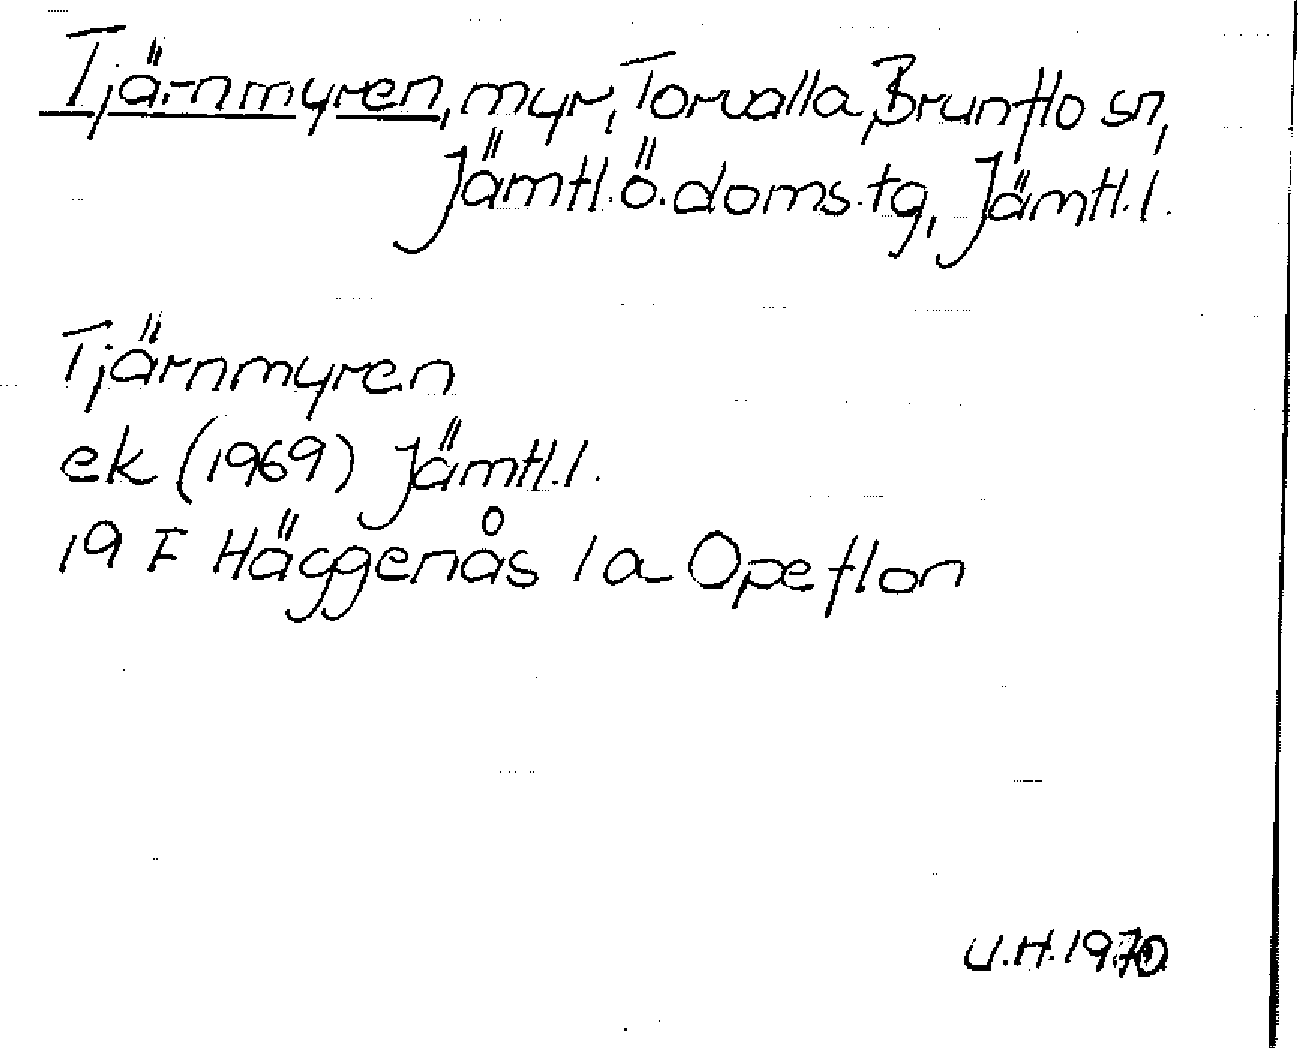 Tjärnmyren, myr, Torvalla, Brunflo sn,
Jämtl.ö.doms.tg, Jämtl.l.
Tjärnmyren
ek (1969) Jämtl.l.
19 F Häggenås 1 a Opeflon
U.H. 1970